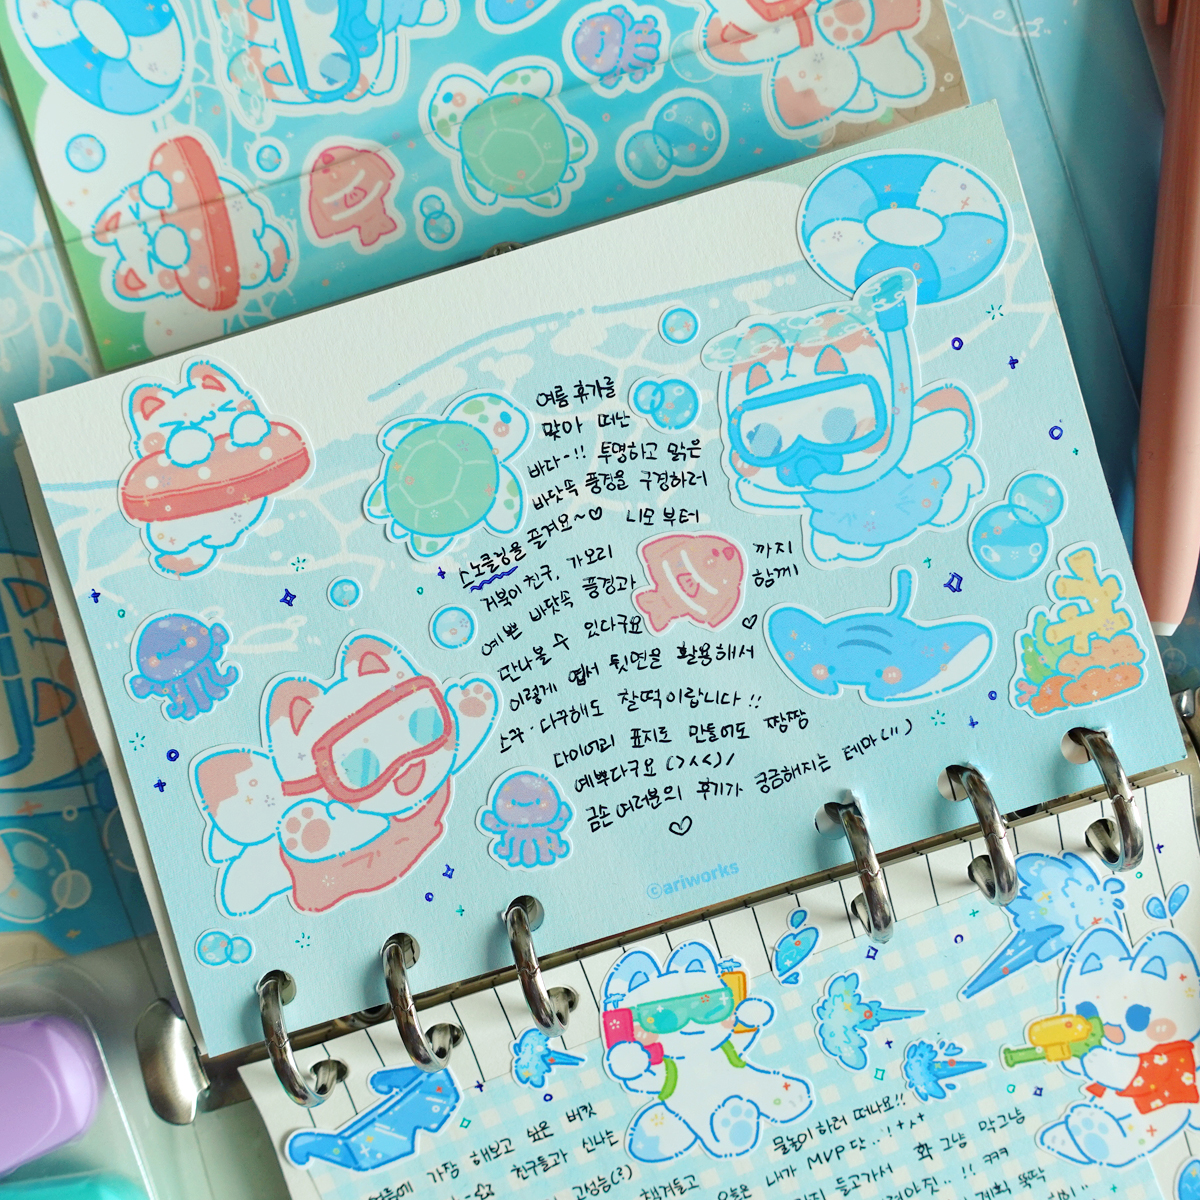 여름 휴가를
맞아 떠난
바다-!! 투명하고 맑은
바닷속 풍경을 구경하러
스노클링을 즐겨요~♡ 니모부터
거북이 친구, 가오리 까지
예쁜 바닷속 풍경과 함께
만나볼 수 있다구요 ♡
이렇게 엽서 뒷면을 활용해서
소각·다꾸해도 찰떡이랍니다!!
다이어리 표지로 만들어도 짱짱
예뿌다구요 (>ㅅ<)/
금손 여러분의 후기가 궁금해지는 테마
♡
©ariworks
가장 해보고 싶은 버킷
친구들과 신나는
고성능(?)
물놀이 하러 떠나요!!
오늘은 내가 MVP 닷
들고가서 화그냥 막그냥
!! ㅋㅋㅋ